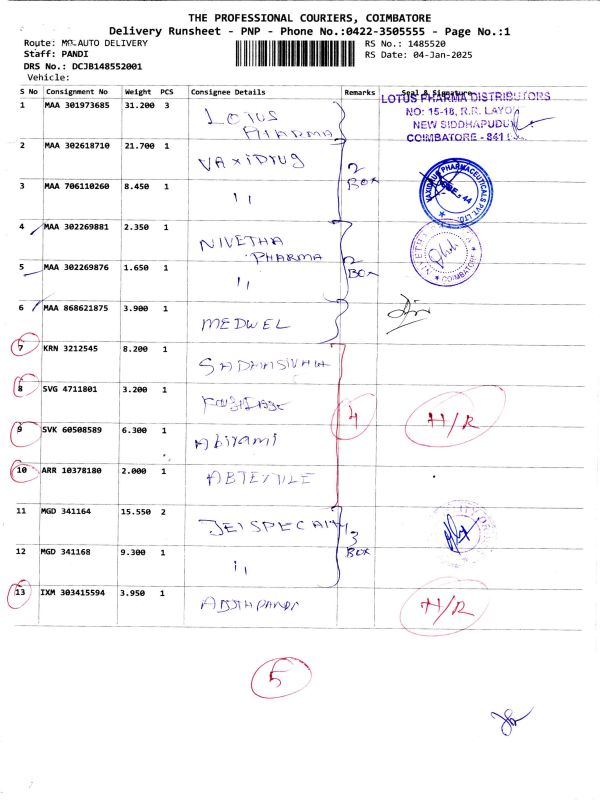 THE PROFESSIONAL COURIERS, COIMBATORE
Delivery Runsheet - PNP - Phone No.:0422-3505555 - Page No.:1
Route: AUTO DELIVERY RS No.: 1485520
Staff: PANDI RS Date: 04-Jan-2025
DRS No.: DCJB148552001
Vehicle:
S No Consignment No Weight PCS Consignee Details Remarks Seal & Signature
1 MAA 301973685 31.200 3 LOTUS PHARMA
LOTUS PHARMA DISTRIBUTORS
NO: 15-18, R.R. LAYO
NEW SIDDHAPUDU
COIMBATORE - 641
2 MAA 302618710 21.700 1 VAXIDRUG 2 BOX
VAXIDRUG PHARMACEUTICALS PVT. LTD
3 MAA 706110260 8.450 1 ''
4 MAA 302269881 2.350 1 NIVETHA PHARMA 2 BOX
NIVETHA
COIMBATORE
5 MAA 302269876 1.650 1 ''
6 MAA 868621875 3.900 1 MEDWEL
7 KRN 3212545 8.200 1 SADHASIVAM
8 SVG 4711801 3.200 1
4 H/R
9 SVK 60508589 6.300 1 Abirami
10 ARR 10378180 2.000 1 ABTEXTILE
11 MGD 341164 15.550 2 JEISPECALTY 3 BOX
12 MGD 341168 9.300 1 ''
13 IXM 303415594 3.950 1 H/R
5